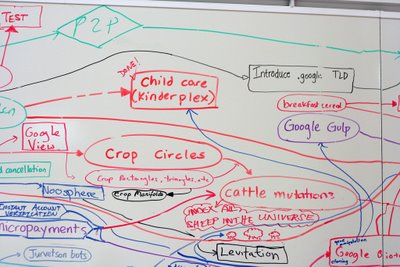 TEST
P2P
DONE!
Child care
(kinderplex)
Introduce .google TLD
breakfast cereal
Google Gulp
Google
View
Crop Circles
cancellation
Crop Rectangles, triangles, etc
Noosphere
Crop Manifolds
cattle mutations
INSTANT ACCOUNT
VERIFICATION
INDEX ALL
SHEEP IN THE UNIVERSE
micropayments
Jurvetson bots
Levitation
Google